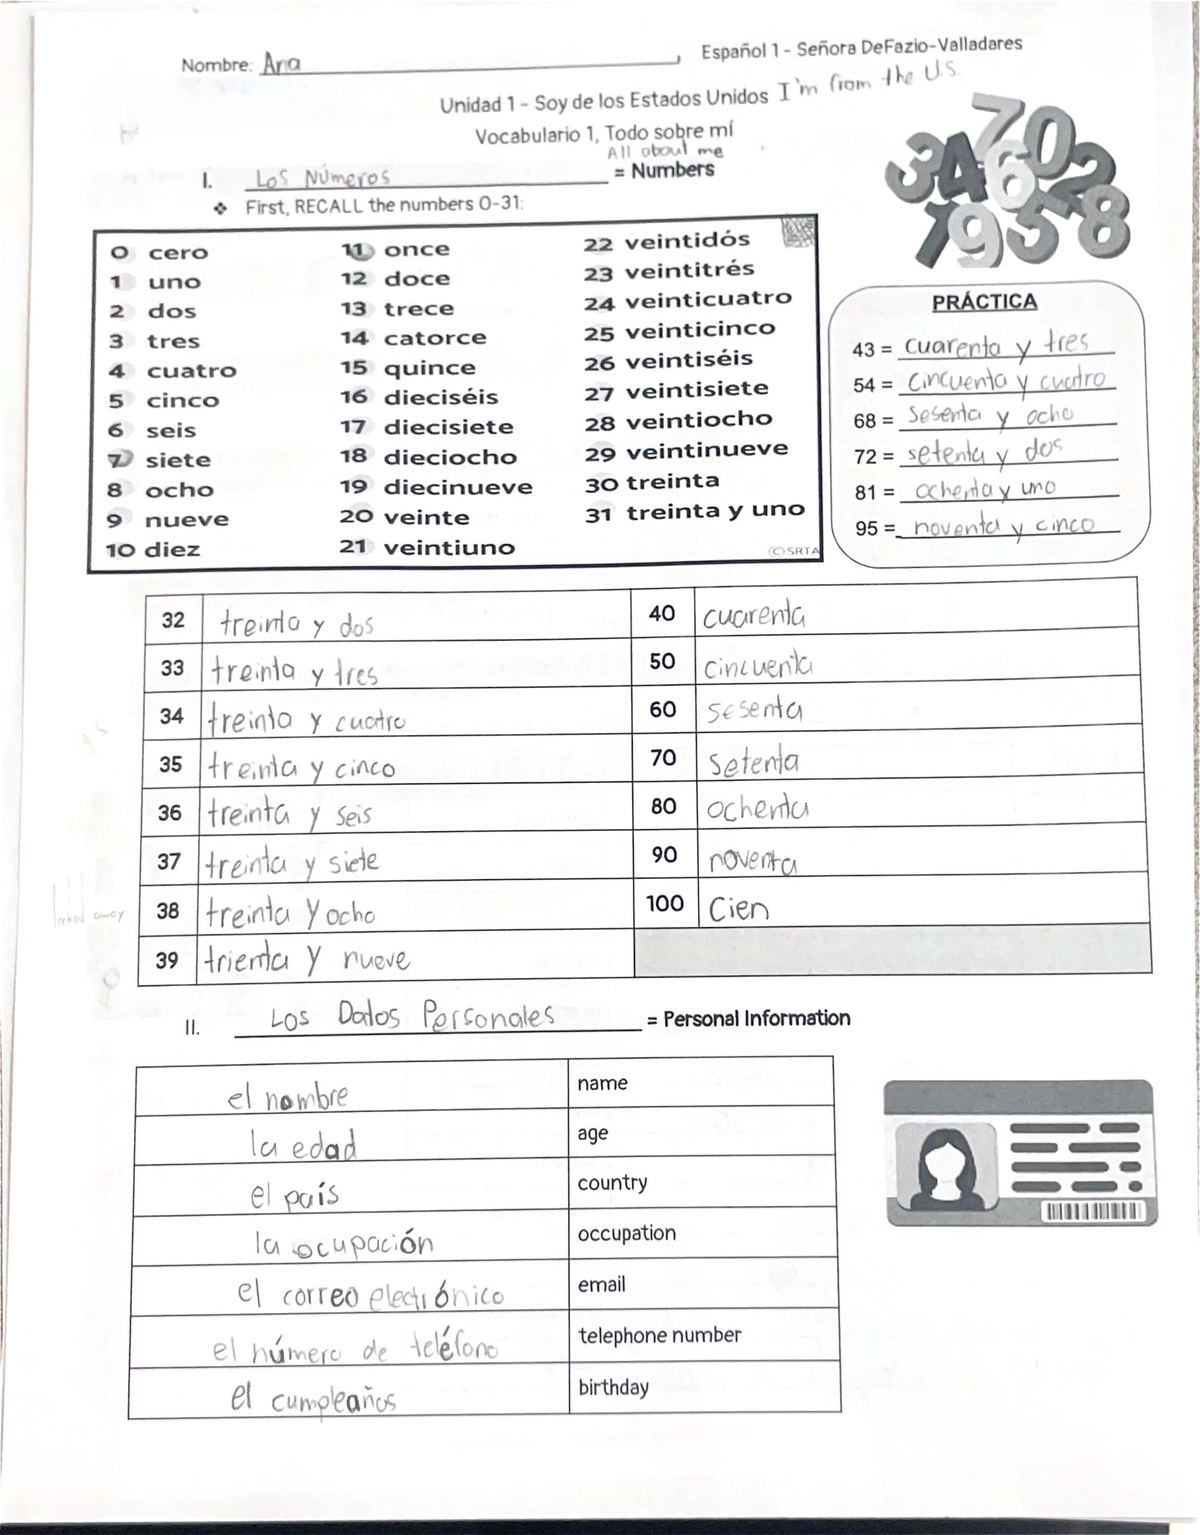 Nombre: Ana
Español 1 - Señora DeFazio-Valladares
Unidad 1 - Soy de los Estados Unidos I'm from the U.S.
Vocabulario 1, Todo sobre mí
All about me
I. Los Números = Numbers
❖ First, RECALL the numbers 0-31:
0 cero 11 once 22 veintidós
1 uno 12 doce 23 veintitrés
2 dos 13 trece 24 veinticuatro
3 tres 14 catorce 25 veinticinco
4 cuatro 15 quince 26 veintiséis
5 cinco 16 dieciséis 27 veintisiete
6 seis 17 diecisiete 28 veintiocho
7 siete 18 dieciocho 29 veintinueve
8 ocho 19 diecinueve 30 treinta
9 nueve 20 veinte 31 treinta y uno
10 diez 21 veintiuno
©SRTA
34 70 6 2 19 5 8
PRÁCTICA
43 = cuarenta y tres
54 = cincuenta y cuatro
68 = sesenta y ocho
72 = setenta y dos
81 = ochenta y uno
95 = noventa y cinco
32 treinta y dos 40 cuarenta
33 treinta y tres 50 cincuenta
34 treinta y cuatro 60 sesenta
35 treinta y cinco 70 setenta
36 treinta y seis 80 ochenta
37 treinta y siete 90 noventa
38 treinta y ocho 100 Cien
39 trienta y nueve
away
II. Los Datos Personales = Personal Information
el nombre name
la edad age
el país country
la ocupación occupation
el correo electrónico email
el número de teléfono telephone number
el cumpleaños birthday